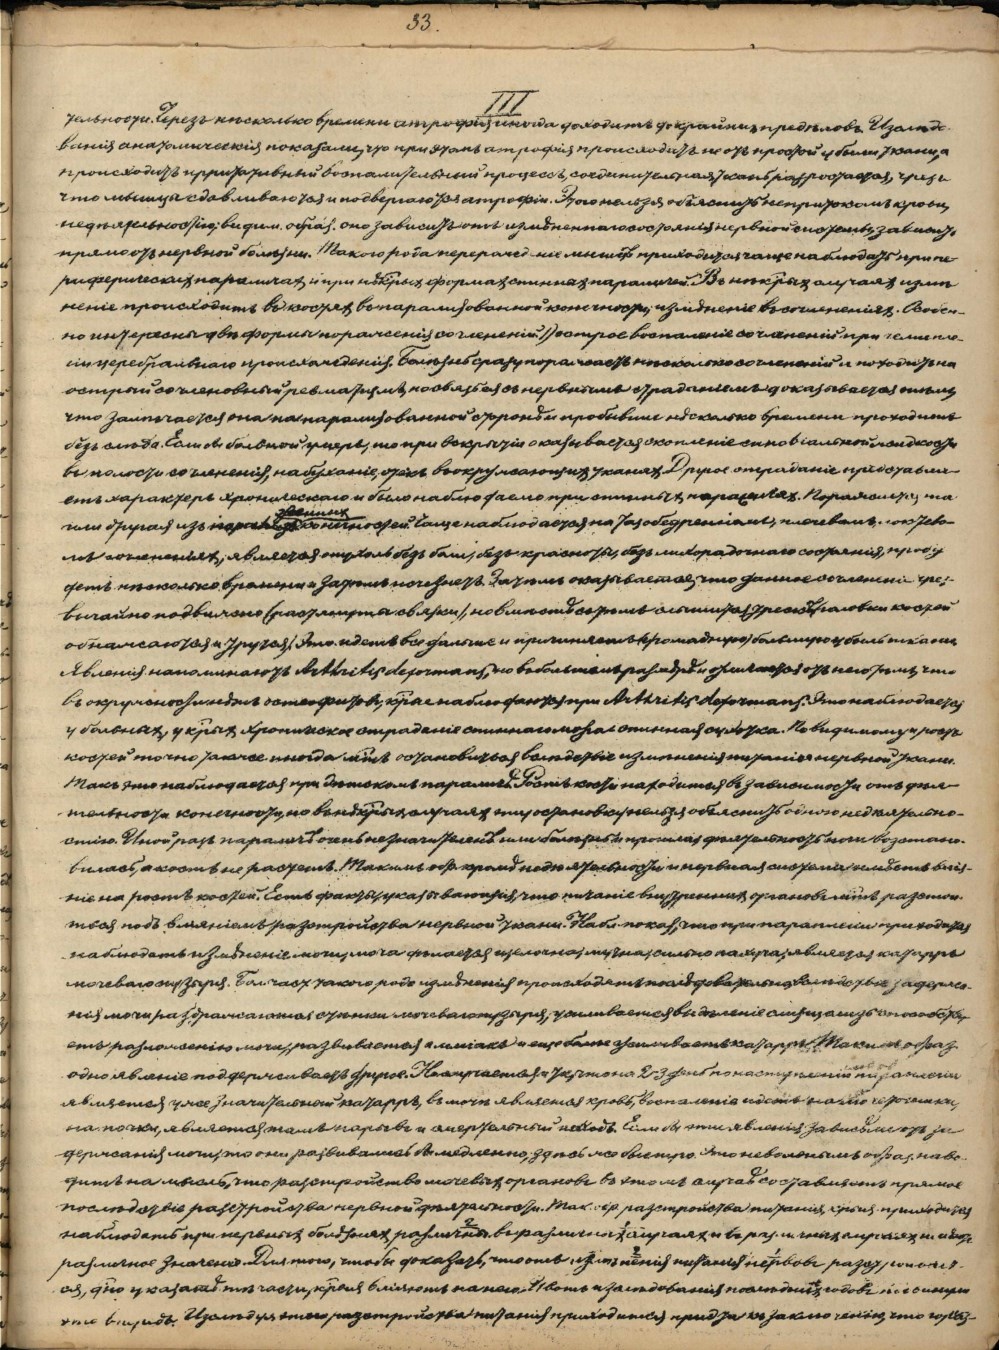 33.
III
тельности. Черезъ нѣсколько времени атрофія иногда доходитъ до крайнихъ предѣловъ. Изслѣдо-
ванія анатомическія показали, что при этомъ атрофія происходитъ не отъ простой убыли ткани, а
происходитъ ирритативный воспалительный процессъ, соединительная ткань разростается, чрезъ
что мышцы сдавливаются и подвергаются атрофіи. Этого нельзя объяснить непритокомъ крови,
недѣятельностію; видим. образ. оно зависитъ отъ измѣненнаго состоянія нервной системы, зависитъ
прямо отъ нервной болѣзни. Такого рода перерожденіе мышцъ приходится чаще наблюдать при пе-
риферическихъ параличахъ и при нѣкрыхъ формахъ спинныхъ параличей. Въ нѣкрыхъ случаяхъ измѣ-
неніе происходитъ въ костяхъ въ парализованной конечности, измѣненіе въ сочлененіяхъ. Особен-
но интересны двѣ формы пораженія сочлененій: 1) острое воспаленіе сочлененій при гемипле-
гіи церебральнаго происхожденія. Болѣзнь сразу поражаетъ нѣсколько сочлененій и походитъ на
острый сочленовный ревматизмъ, но связь ея съ нервнымъ страданіемъ доказывается тѣмъ,
что замѣчается она на парализованной сторонѣ и пробывше нѣсколько времени проходитъ
безъ слѣда. Если бы больной умеръ, то при вскрытіи оказывается скопленіе синовіальной жидкости
въ полости сочлененія, набуханіе, отекъ въ окружающихъ тканяхъ. Другое страданіе представля-
етъ характеръ хроническаго и было наблюдаемо при спинныхъ параличахъ. Поражается та
или другая изъ конечностей. Чаще наблюдается на тазобедренномъ, плечевомъ, локтево-
мъ сочлененіяхъ, является опухоль безъ боли, безъ красноты, безъ лихорадочнаго состоянія, пробу-
детъ нѣсколько времени и затѣмъ исчезнетъ. Затѣмъ оказывается, что данное сочлененіе чрез-
вычайно подвижно (растянуты связки), но вмѣстѣ съ тѣмъ слышится трескъ (головки костей
обнажаются и трутся). Это идетъ все дальше и причиняетъ (громадную) большую убыль ткани.
Явленія напоминаютъ Arthritis deformans, но въ большемъ размѣрѣ, отличается отъ него тѣмъ, что
въ окружности нѣтъ остеофитовъ, крые наблюдаются при Arthritis deformans. Это наблюдается
у больныхъ, у крыхъ хроническое страданіе спиннаго мозга и спинная сухотка. Повидимому и ростъ
костей точно также иногда можетъ остановиться вслѣдствіе измѣненія питанія нервной ткани.
Такъ это наблюдается при дѣтскомъ параличѣ. Ростъ кости находится въ зависимости отъ дѣя-
тельности конечности, но въ нѣкрыхъ случаяхъ эту остановку нельзя объяснить одною недѣятельно-
стію. Иной разъ параличъ очень незначителенъ или болѣзнь и прошла, дѣятельность возстано-
вилась, а кость не растетъ. Такимъ обр. кромѣ недѣятельности и нервная система имѣетъ влія-
ніе на ростъ костей. Есть факты, указывающіе, что питаніе внутреннихъ органовъ можетъ разстро-
иться подъ вліяніемъ разстройства нервной ткани. Набл. показ., что при параплегіи приходится
наблюдать измѣненіе мочи, моча дѣлается щелочная, мутна, сильно пахуча, является катарръ
мочеваго пузыря. Бол. часть такого рода измѣненія происходятъ послѣдовательно, вслѣдствіе задержа-
нія мочи раздражаются стѣнки мочеваго пузыря, усиливается выдѣленіе слизи, слизь способству-
етъ разложенію мочи, развивается амміакъ и еще болѣе усиливаетъ катарръ. Такимъ образ.
одно явленіе поддерживаетъ другое. Но случается и такъ, что на 2-3 день по наступленіи параплегіи
является уже значительный катарръ, въ мочѣ является кровь, воспаленіе идетъ на мочеточники,
на почки, является тамъ нарывъ и смертельный исходъ. Если бы эти явленія зависѣли отъ за-
держанія мочи, то они развивались бы медленно, здѣсь же быстро. Это невольнымъ образ. наво-
дитъ на мысль, что разстройство мочевыхъ органовъ въ этомъ случаѣ составляетъ прямое
послѣдствіе разстройства нервной дѣятельности. Так. обр. разстройства питанія приходится
наблюдать при нервныхъ болѣзняхъ различны въ различныхъ случаяхъ и въ различныхъ случаяхъ имѣютъ
различное значеніе. Для того, чтобы доказать, что